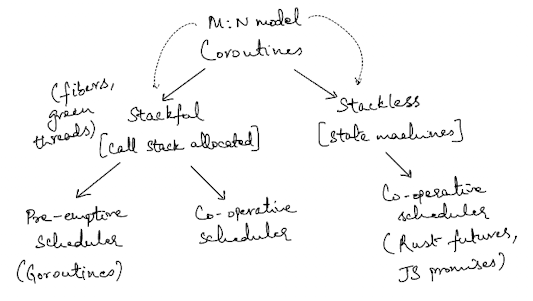 M:N model
Coroutines
(fibers,
green
threads)
Stackful
[call stack allocated]
Stackless
[state machines]
Pre-emptive
scheduler
(Goroutines)
Co-operative
scheduler
Co-operative
scheduler
(Rust futures,
JS promises)